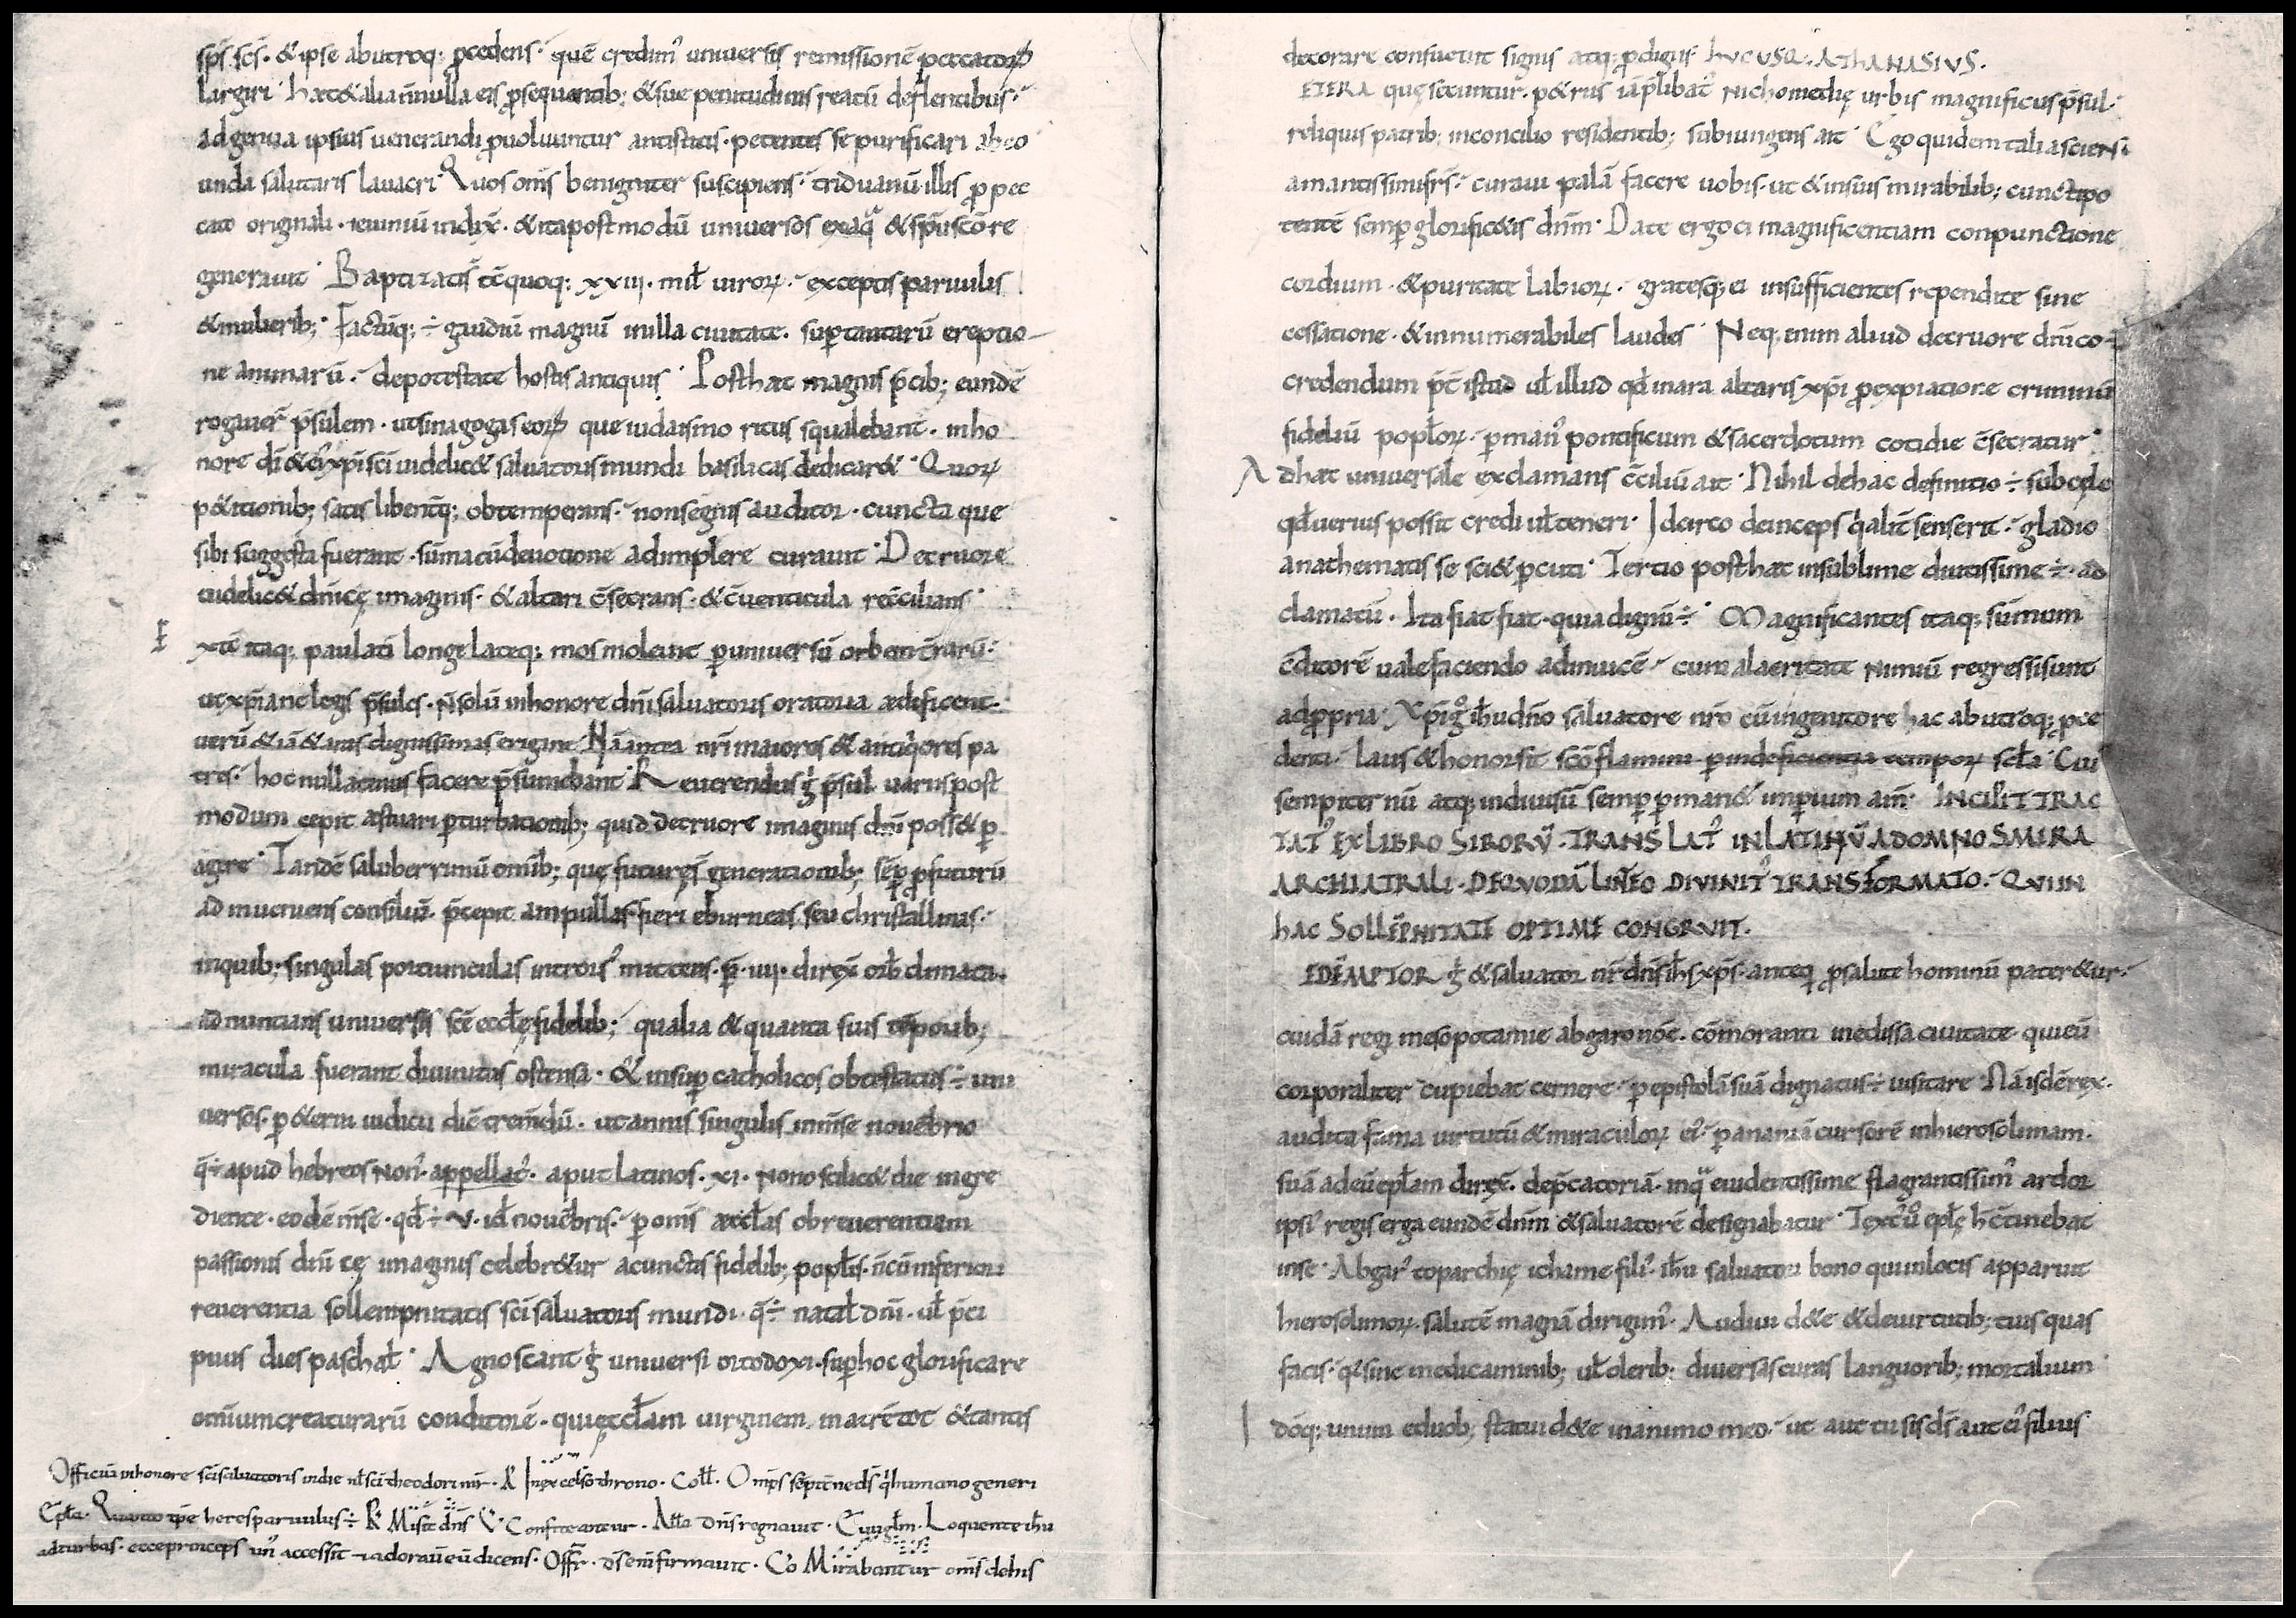 sp̄s sc̄s. & ipse ab utroq; p̱cedens. quē credim᾿ universis remissionē peccatoꝝ
largiri. hæc & alia n̄nulla eis p̱sequentib; & suę penitudinis reatū deflentibus.
ad genua ipsius venerandi p̱voluuntur antistitis. petentes se purificari ab eo
unda salutaris lavacri. Quos om̄s benigniter suscipiens. triduanū illis ꝓ pec
cato originali. ieiuniū indix̄. & ita postmodū universos ex aq̄ & sp̄u sc̄o re
generavit. Baptizatis itēquoq; xxiii. mil̄ viroꝝ. exceptis parvulis
& mulierib; Factūq; ÷ gaudiū magnū in illa civitate. sup tantarū ereptio
ne animarū. de potestate hostis antiqui. Post hæc magnis p̄cib; eundē
rogaver̄ p̄sulem. ut sinagogas eoꝝ que iudaismo ritus squalebant. in ho
nore dī & ei᾿ xp̄i sc̄i videlic& salvatoris mundi basilicas dedicar&. Quoꝝ
p&itionib; satis libent̄q; obtemperans. non segnis auditor. cuncta que
sibi suggesta fuerant. sūma cū devotione adimplere curavit. De cruore
videlic& dn̄icę imaginis. & altari c̄secrans. & c̄venticula rec̄cilians.
E xtē itaq; paulati longe lateq; mos molevit p̱ universū orbem t̄rarū.
ut xp̄iane legis p̄sules. n̄ solū in honore dn̄i salvatoris oratoria ædificent.
verū & iā & aulas dignissimas erigant. Nā antea nr̄i maiores & antiq̄ores pa
tres. hoc nullatenus facere p̄sumebant. Reverendus ḡ p̄sul varus post
modum cepit æstuari p̱turbationib; quid de cruore imaginis dn̄i poss& p̱
agere. Tandē saluberrimū om̄ib; quę futurę sē generationib; sēp̱ ꝓfuturū
ad inveniens consiliū. p̄cepit ampullas fieri eburneas seu christallinas.
in quib; singulas portiunculas introrś mittens. p̄ iiii. direx̄ orb̄ climata.
adnuntians universis sc̄e eccl̄ę fidelib; qualia & quanta suis tēporib;
miracula fuerant divinitus ostensa. & insup̱ catholicos obtestatus ÷ uni
versos. p̱ &erni iudicii diē tremēdū. ut annis singulis in m̄se novēbrio
q̄ ÷ apud hebreos Non᾿. appellat᾿. aput latinos. xi. Nono scilic& die ingre
diente. eodē m̄se. qd̄ ÷ v. id̄ novēbris. p̱ om̄s æccl̄as ob reverentiam
passionis dn̄icę imaginis celebr&ur a cunctis fidelib; popl̄is. n̄ cū inferiori
reverentia sollempnitatis sc̄i salvatoris mundi. q̄ ÷ natal̄ dn̄i. ul̄ p̄ci
puus dies paschal̄. Agnoscant ḡ universi ortodoxi. sup̱ hoc glorificare
omniumcreaturarū conditorē. qui ęccl̄am virginem matrē tot & tantis
Officiū in honore sc̄i salvatoris in die nl̄ sc̄i theodori mr̄. R̷ In excelso throno. Coll̄. Om̄ps sēpit̄ne d̄s q̄ humano generi
Epl̄a. Quanto tp̄e heres parvulus ÷ R̷ Misit dn̄s V. Confiteantur. All̄a Dn̄s regnavit. Evvgl̄m. Loquente ih̄u
ad turbas. ecce princeps un᾿ accessit & adorav̄ eū dicens. Off̄r. D̄s enī firmavit. Co Mirabantur om̄s de his
decorare consuevit signis atq; p̱digiis. HVCUSQ; ATHANASIVS.
ETERA quę secuntur. p&rus iā p̄libat᾿ nichomedię urbis magnificus p̄sul.
reliquis patrib; in concilio residentib; subiungens ait. Ego quidem talia sciens
amantissimi fr̄s. curavi palā facere vobis. ut & in suis mirabilib; cunctipo
tentē semp̱ glorific&is dn̄m. Date ergo ei magnificentiam conpunctione
cordium. & puritate labioꝝ. gratesq; ei insufficientes rependite sine
cessatione. & innumerabiles laudes. Neq; enim aliud de cruore dn̄ico
credendum p̄t istud ul̄ illud qd̄ in ara altaris xp̄i ꝓ expiatione criminū
fideliū popl̄oꝝ. p̱ man᾿ pontificum & sacerdotum cotidie c̄secratur.
Ad hæc universale exclamans c̄ciliū ait. Nihil de hac definitio ÷ sub cęlo
qd̄ verius possit credi ul̄ teneri. Idcirco deinceps q̄ alit̄ senserit. gladio
anathematis se sci& p̱cuti. Tertio post hæc in sublime diutissime ÷ ac
clamatū. Ita fiat fiat. quia dignū ÷. Magnificantes itaq; sūmum
c̄ditorē valefaciendo adinvicē. cum alacritate nimiū regressi sunt
ad ꝓpria. Xp̄i ḡ ih̄u dn̄o salvatore nr̄o cū ingenitore hac ab utroq; p̱ce
denti. laus & honor sit sc̄o flamini. p̱ indeficientia tempoꝝ scl̄a. Cui᾿
sempiternū atq; indivisū semp̱ p̱man& imp̱ium am̄. INCIPIT TRAC
TAT᾿ EX LIBRO SIRORŪ. TRANSLAT᾿ IN LATINŪ A DOMNO SMIRA
ARCHIATRALI. DE QVODĀ LINTEO DIVINIT᾿ TRANSFORMATO. QVI IN
HAC SOLLEMPNITATE OPTIME CONGRVIT.
EDEMPTOR ḡ & salvator nr̄ dn̄s ih̄s xp̄s. anteq̄ ꝓ salute hominū pater&ur.
cuidā regi mesopotamie abgaro noe᾿. cōmoranti in edissa civitate. qui eū
corporaliter cupiebat cernere. p̱ epistolā suā dignatus ÷ visitare. Nā isdē rex.
audita fama virtutū & miraculoꝝ ei᾿. p̱ ananiā cursorē in hierosolimam.
suā ad eū epl̄am direx̄. dep̄catoriā. in q̄ evidentissime flagrantissim᾿ ardor
ipsi᾿ regis erga eundē dn̄m & salvatorē designabatur. Text᾿ ū epl̄ę h̄ c̄tinebat
in se. Abgar᾿ toparchię ichame fili᾿. ih̄u salvatori bono qui in locis apparuit
hierosolimoꝝ. salutē magnā dirigim᾿. Audivi de te & de virtutib; tuis quas
facis. q̄ sine medicaminib; ul̄ olerib; diversas curas languorib; mortalium
I dōq; unum e duob; statui de te in animo meo. ut aut tu sis d̄s aut ei᾿ filius